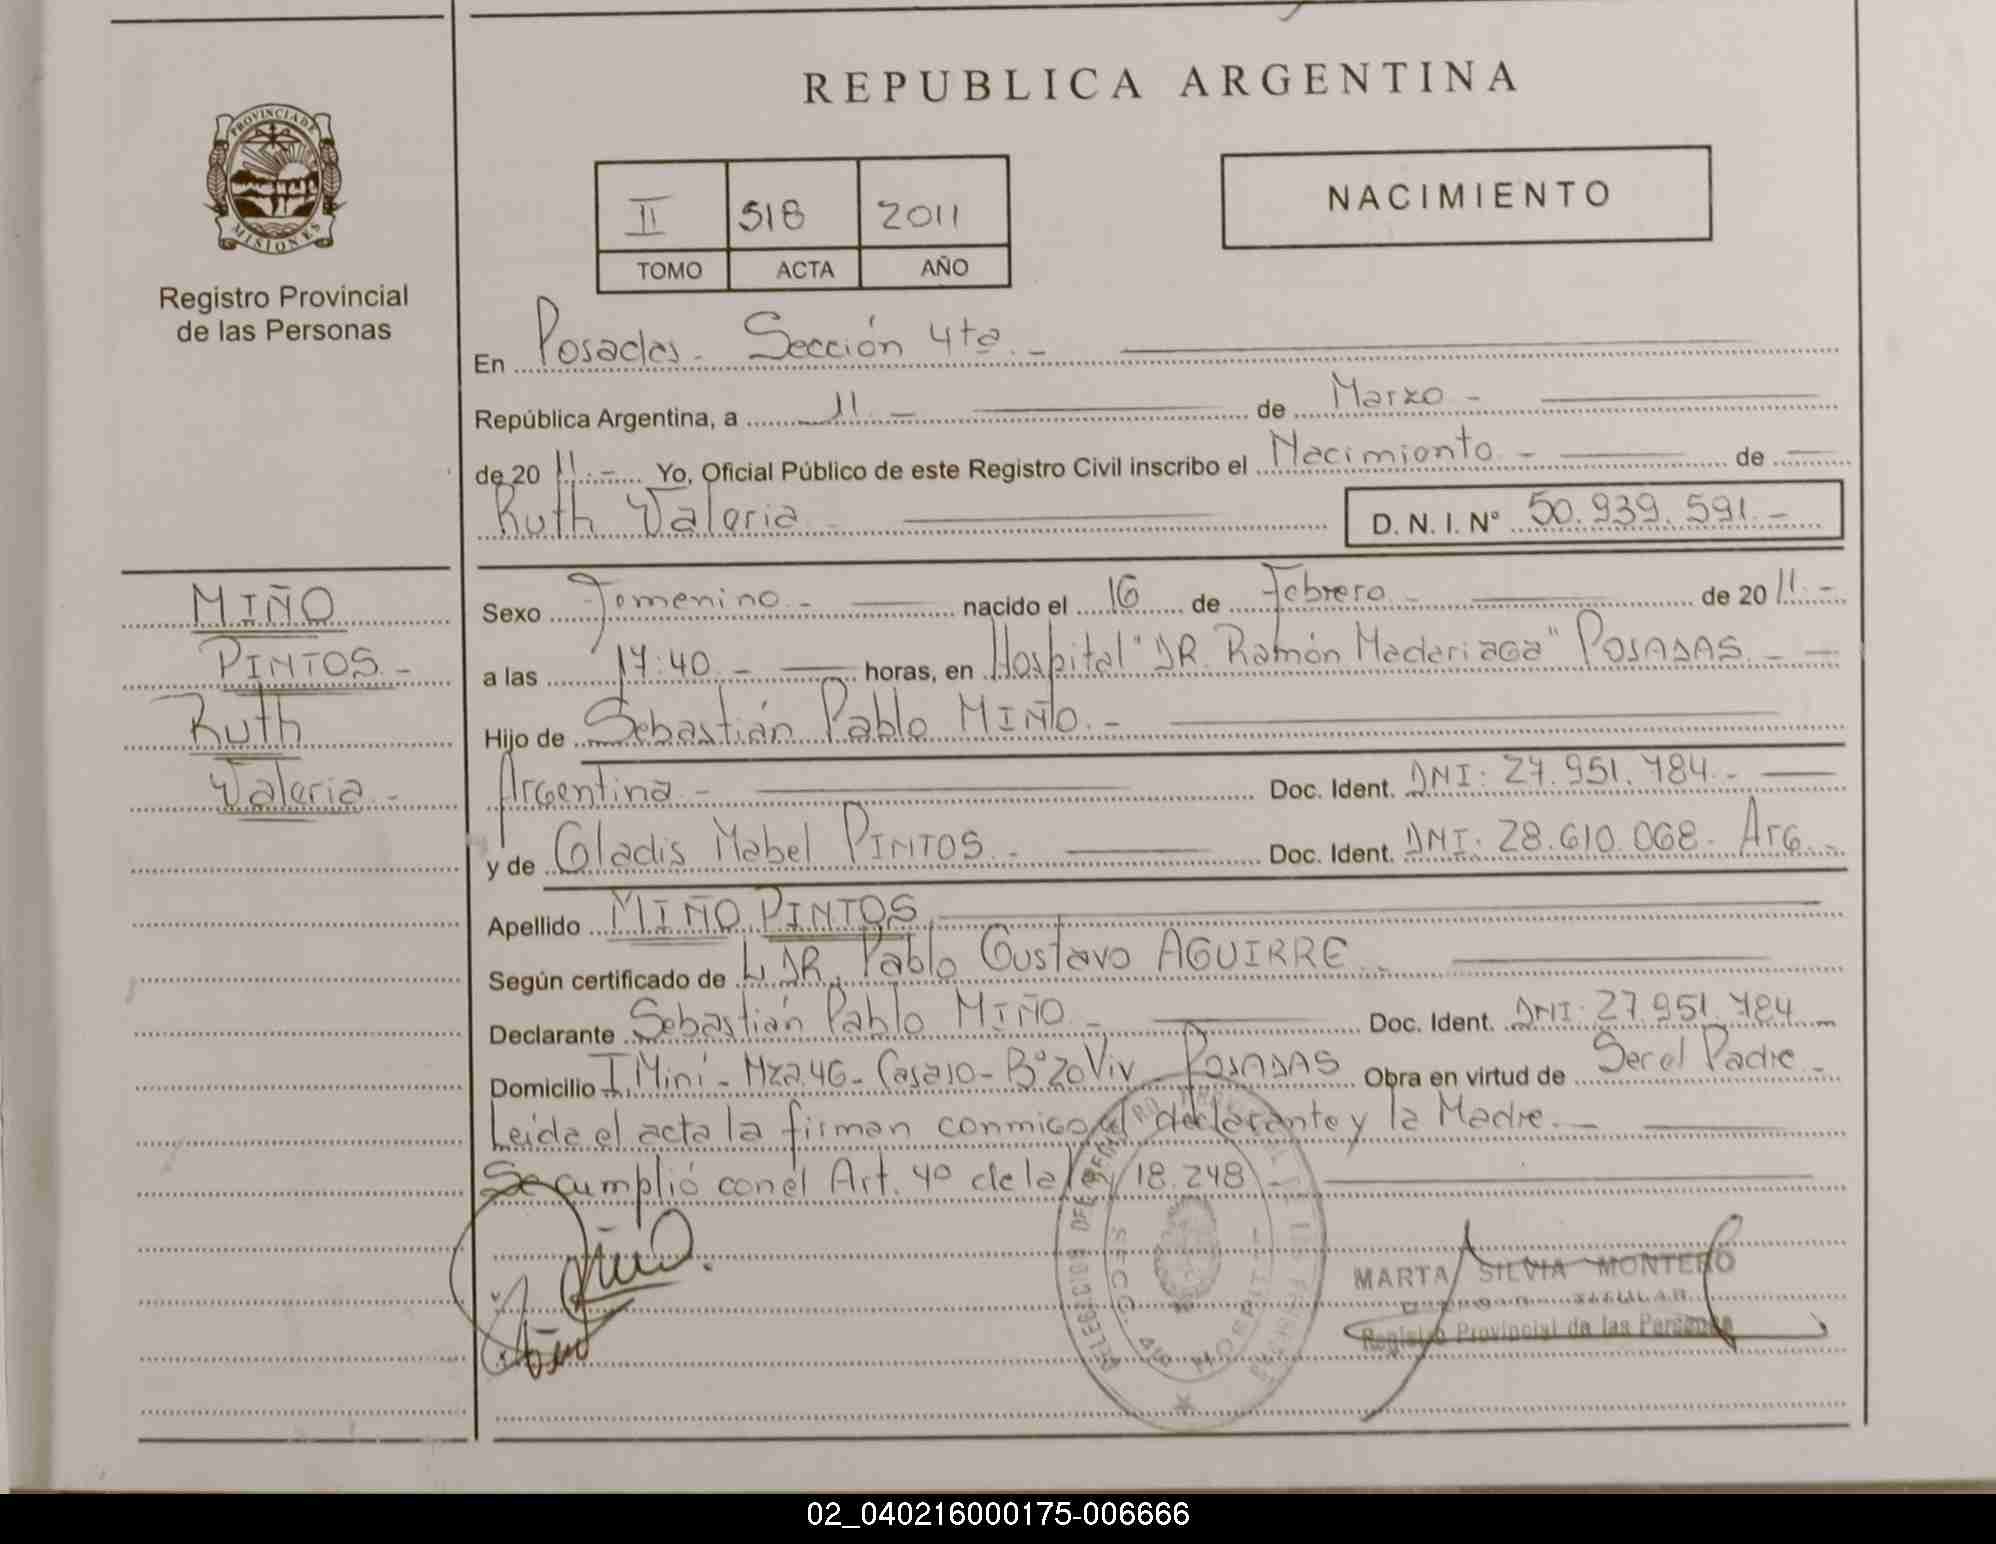 REPUBLICA ARGENTINA
PROVINCIA DE
MISIONES
Registro Provincial
de las Personas
II 518 2011
TOMO ACTA AÑO
NACIMIENTO
En Posadas. Sección 4ta. -
República Argentina, a 11. - de Marzo -
de 20 11. - Yo, Oficial Público de este Registro Civil inscribo el Nacimiento - de
Ruth Valeria - D. N. I. N° 50.939.591.-
MIÑO
PINTOS -
Ruth
Valeria -
Sexo Femenino. - nacido el 16 de Febrero - de 20 11. -
a las 17:40. - horas, en Hospital "DR. Ramón Madariaga" POSADAS. -
Hijo de Sebastián Pablo MIÑO. -
Argentina - Doc. Ident. DNI: 27.951.784. -
y de Gladis Mabel PINTOS. - Doc. Ident. DNI: 28.610.068. ARG. -
Apellido MIÑO PINTOS
Según certificado de DR. Pablo Gustavo AGUIRRE -
Declarante Sebastián Pablo MIÑO - Doc. Ident. DNI: 27.951.784 -
Domicilio I. Miní - Mza 46 - Casa 10 - B° 20 Viv - POSADAS Obra en virtud de Ser el Padre -
Leida el acta la firman conmigo el declarante y la Madre. -
Se cumplió con el Art. 40 de la ley 18.248 -
SECC. 4ta
MARTA SILVIA MONTERO
Registro Provincial de las Personas
02_040216000175-006666